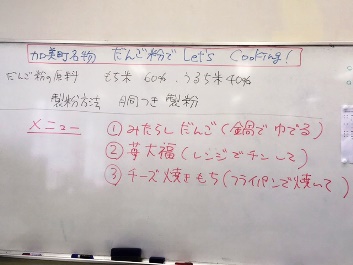 加美町名物 だんご粉で Let's Cooking!
だんご粉の原料 もち米 60%、うるち米 40%
製粉方法 胴つき製粉
メニュー ①みたらしだんご(鍋でゆでる)
②苺大福(レンジでチンして)
③チーズ焼きもち(フライパンで焼いて)